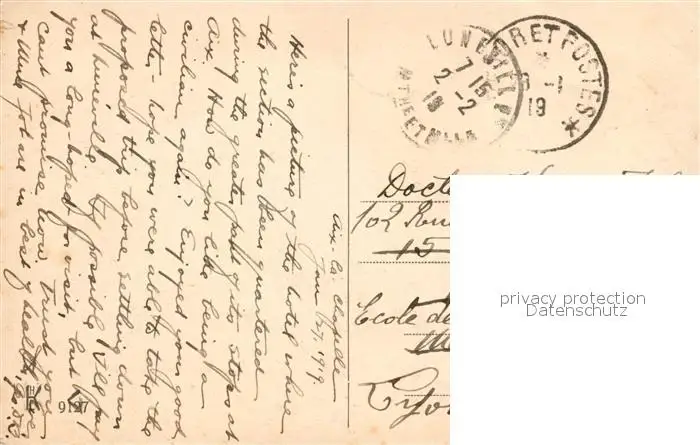 Aix-la-Chapelle
Jan 27, 1919.
Here's a picture of the hotel where
the section has been quartered
during the greater part of its stops at
Aix. How do you like being a
civilian again? Enjoyed your good
letter - hope you were able to take the
proposed trip before settling down
at Lunéville. If possible I'll pay
you a long hoped for visit, but
can't promise now. Trust you
& Mme Job are in best of health,
LUNEVILLE
7 15
2 - 2
19
MTHE ET MLLE
RET POSTES
* 
- 1
19
*
Docte
102 Rue
15
Ecole de
Lyon
9127
privacy protection
Datenschutz